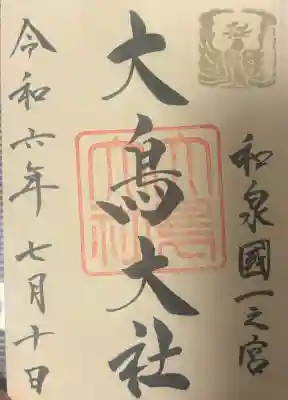 和泉國一之宮
大鳥大社
令和六年七月十日